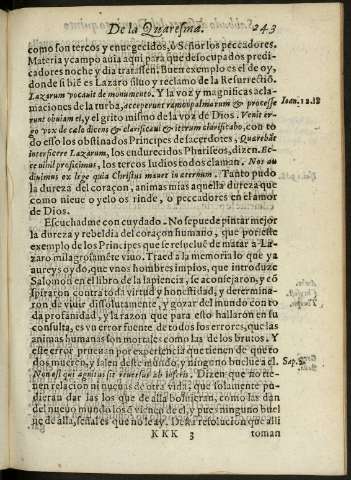 De la Quaresma. 243
como son tercos y enuegecidos, ò Señor los peccadores.
Materia y campo auia aqui para que desocupados predi-
cadores noche y dia tratassen. Buen exemplo es el de oy,
donde si biẽ es Lazaro siluo y reclamo de la Resurrectiõ.
Lazarum vocauit de monumento. Y la voz y magnificas acla-
maciones de la turba, acceperunt ramos palmarum & processe
runt obuiam ei, y el grito mismo de la voz de Dios. Venit er-
go vox de cælo dicens & clarificaui & iterum clarificabo, con to
do esso los obstinados Principes de sacerdotes, Quærebãt
interficere Lazarum, los endurecidos Phariseos, dizen. Ec-
ce nihil proficimus, los tercos Iudios todos claman. Nos au
diuimus ex lege quia Christus manet in æternum. Tanto pudo
la dureza del coraçon, animas mias aquella dureza que
como nieue o yelo os rinde, ò peccadores en el amor
de Dios.
Escuchadme con cuydado. No se puede pintar mejor
la dureza y rebeldia del coraçon humano, que por este
exemplo de los Principes que se resueluẽ de matar a La-
zaro milagrosamẽte viuo. Traed a la memoria lo que ya
aureys oydo, que vnos hombres impios, que introduze
Salomon en el libro de la sapiencia, se aconsejaron, y cõ
spiraron contra toda virtud y honestidad, y determina-
ron de viuir dissolutamente, y gozar del mundo con to
da profanidad, y la razon que para esto hallaron en su
consulta, es vu error fuente de todos los errores, que las
animas humanas son mortales como las de los brutos. Y
este error prueuan por experiencia que tienen de que to
dos mueren, y salen deste mundo, y ninguno buelue a el.
Non est qui agnitus sit reuersus ab inferis. Dizen que no tie-
nen relacion ni nueuas de otra vida, que solamente pu-
dieran dar las los que de alla boluieran, como las dan
del nueuo mundo los q̃ vienen de el, y pues ninguno buel
ue de alla, señal es que no le ay. Desta resolucion que alli
KKK 3 toman
Ioan. 12.18
Sap. 2.